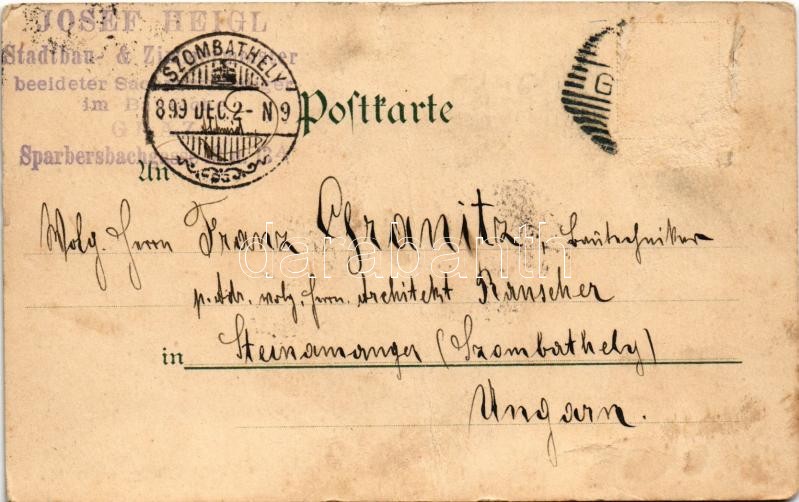 JOSEF HEIGL
Stadtbau- &
beeideter
im
Sparbersbachg
SZOMBATHELY
899 DEC. 2- N 9
Postkarte
G
An
Wolg. Herrn Franz Granitz, Bautechniker
p. Adr. wolg. Herrn Architekt Rauscher
in Steinamanger (Szombathely)
Ungarn.
darabanth